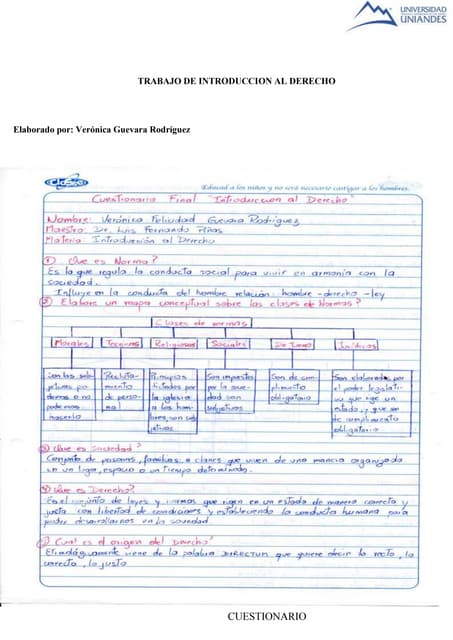 UNIVERSIDAD
UNIANDES
TRABAJO DE INTRODUCCION AL DERECHO
Elaborado por: Verónica Guevara Rodríguez
Educad a los niños y no será necesario castigar a los hombres.
Cuestionario Final "Introduccion al Derecho"
Nombre: Verónica Felicidad Guevara Rodriguez
Maestro: Dr. Luis Fernando Piñas
Materia: Introducción al Derecho
① Que es Norma?
Es la que regula la conducta social para vivir en armonia con la
sociedad.
Influye en la conducta del hombre relación: hombre - derecho - ley
② Elabore un mapa conceptual sobre las clases de Normas?
Clases de normas
Morales Religiosas Sociales Jurídicas
Son impuestos
por la
son
subjetivas
Son de cum-
plimiento
obligatorio
Son elaborados por
el poder legislati-
vo que rige un
estado y que son
de cumplimiento
obligatorio
③ Que es Sociedad?
Conjunto de personas, familias o clanes que viven de una manera organizada
en un lugar, espacio o un tiempo determinado.
④ Que es Derecho?
Es el conjunto de leyes y normas que rigen en un estado de manera correcta y
justa con libertad de condiciones y estableciendo la conducta humana para
poder desarrollarnos en la sociedad
⑤ Cual es el origen del Derecho?
Etimológicamente viene de la palabra DIRECTUN que quiere decir lo recto, lo
correcto, lo justo
CUESTIONARIO